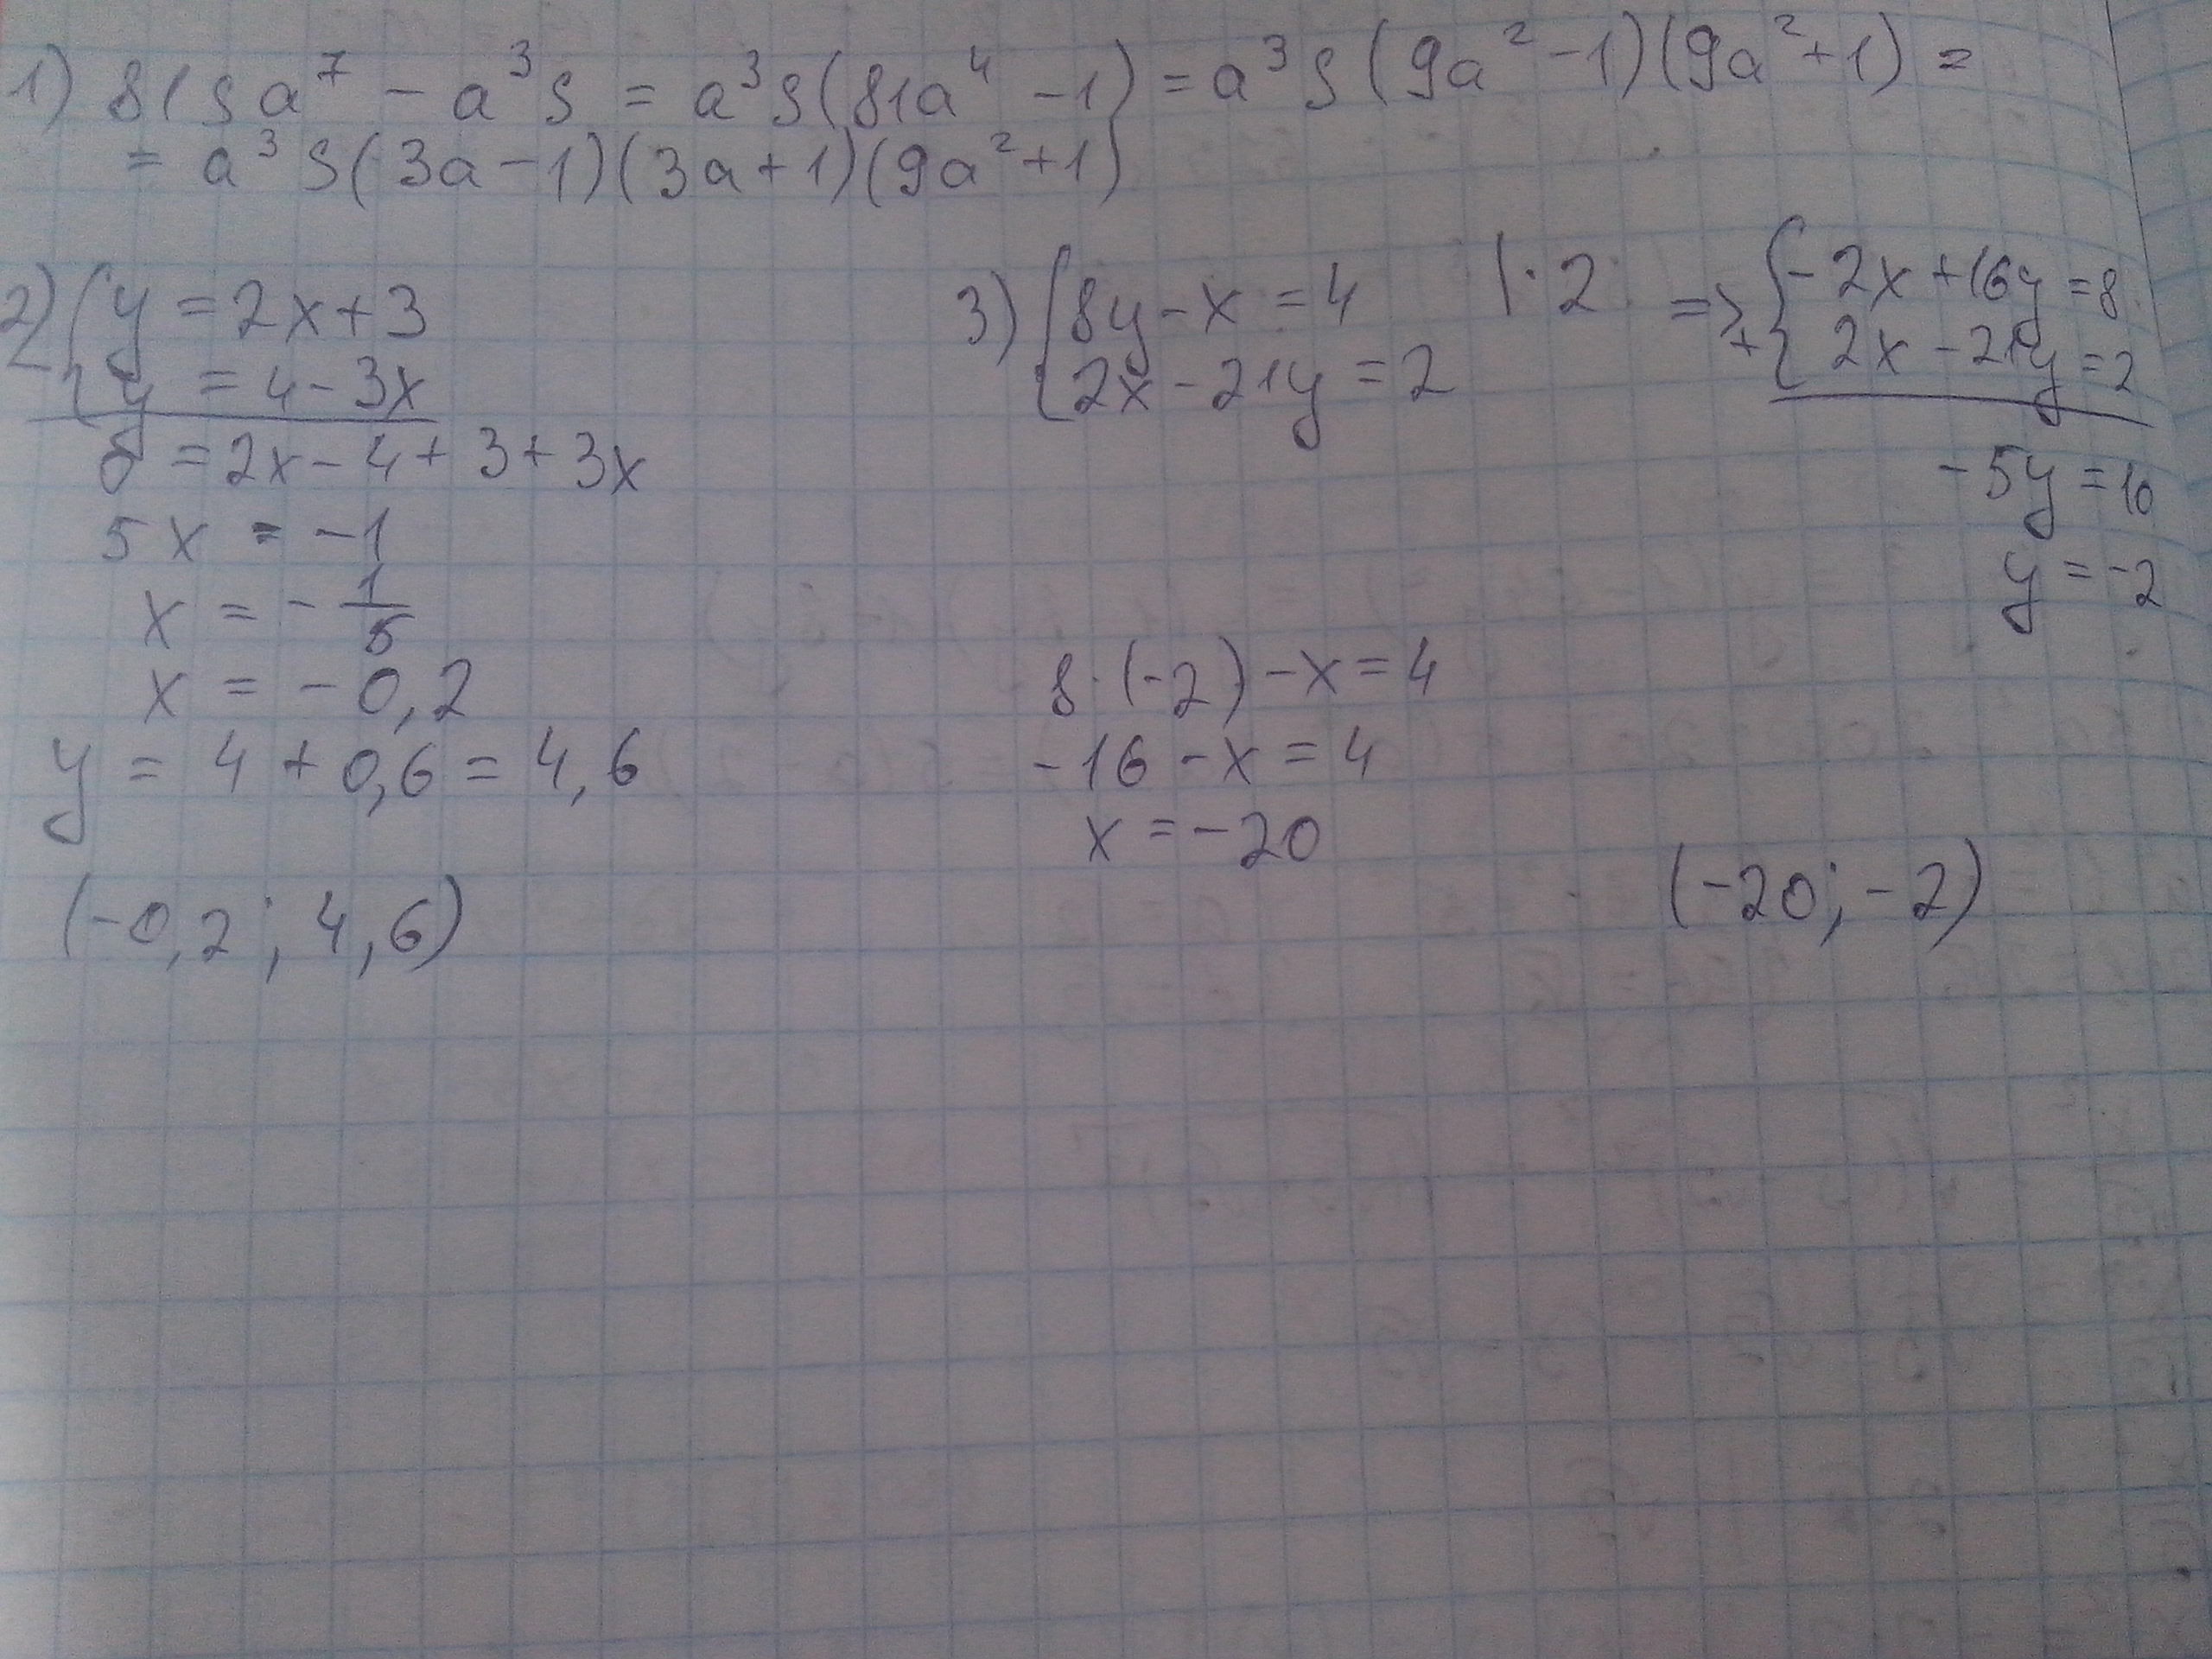 1) 81sa⁷ - a³s = a³s(81a⁴ - 1) = a³s(9a² - 1)(9a² + 1) =
= a³s(3a - 1)(3a + 1)(9a² + 1)
2) { y = 2x + 3
y = 4 - 3x
0 = 2x - 4 + 3 + 3x
5x = -1
x = - 1/5
x = -0,2
y = 4 + 0,6 = 4,6
(-0,2 ; 4,6)
3) { 8y - x = 4 | · 2 => + { -2x + 16y = 8
2x - 21y = 2 2x - 21y = 2
-5y = 10
y = -2
8 · (-2) - x = 4
-16 - x = 4
x = -20
(-20; -2)